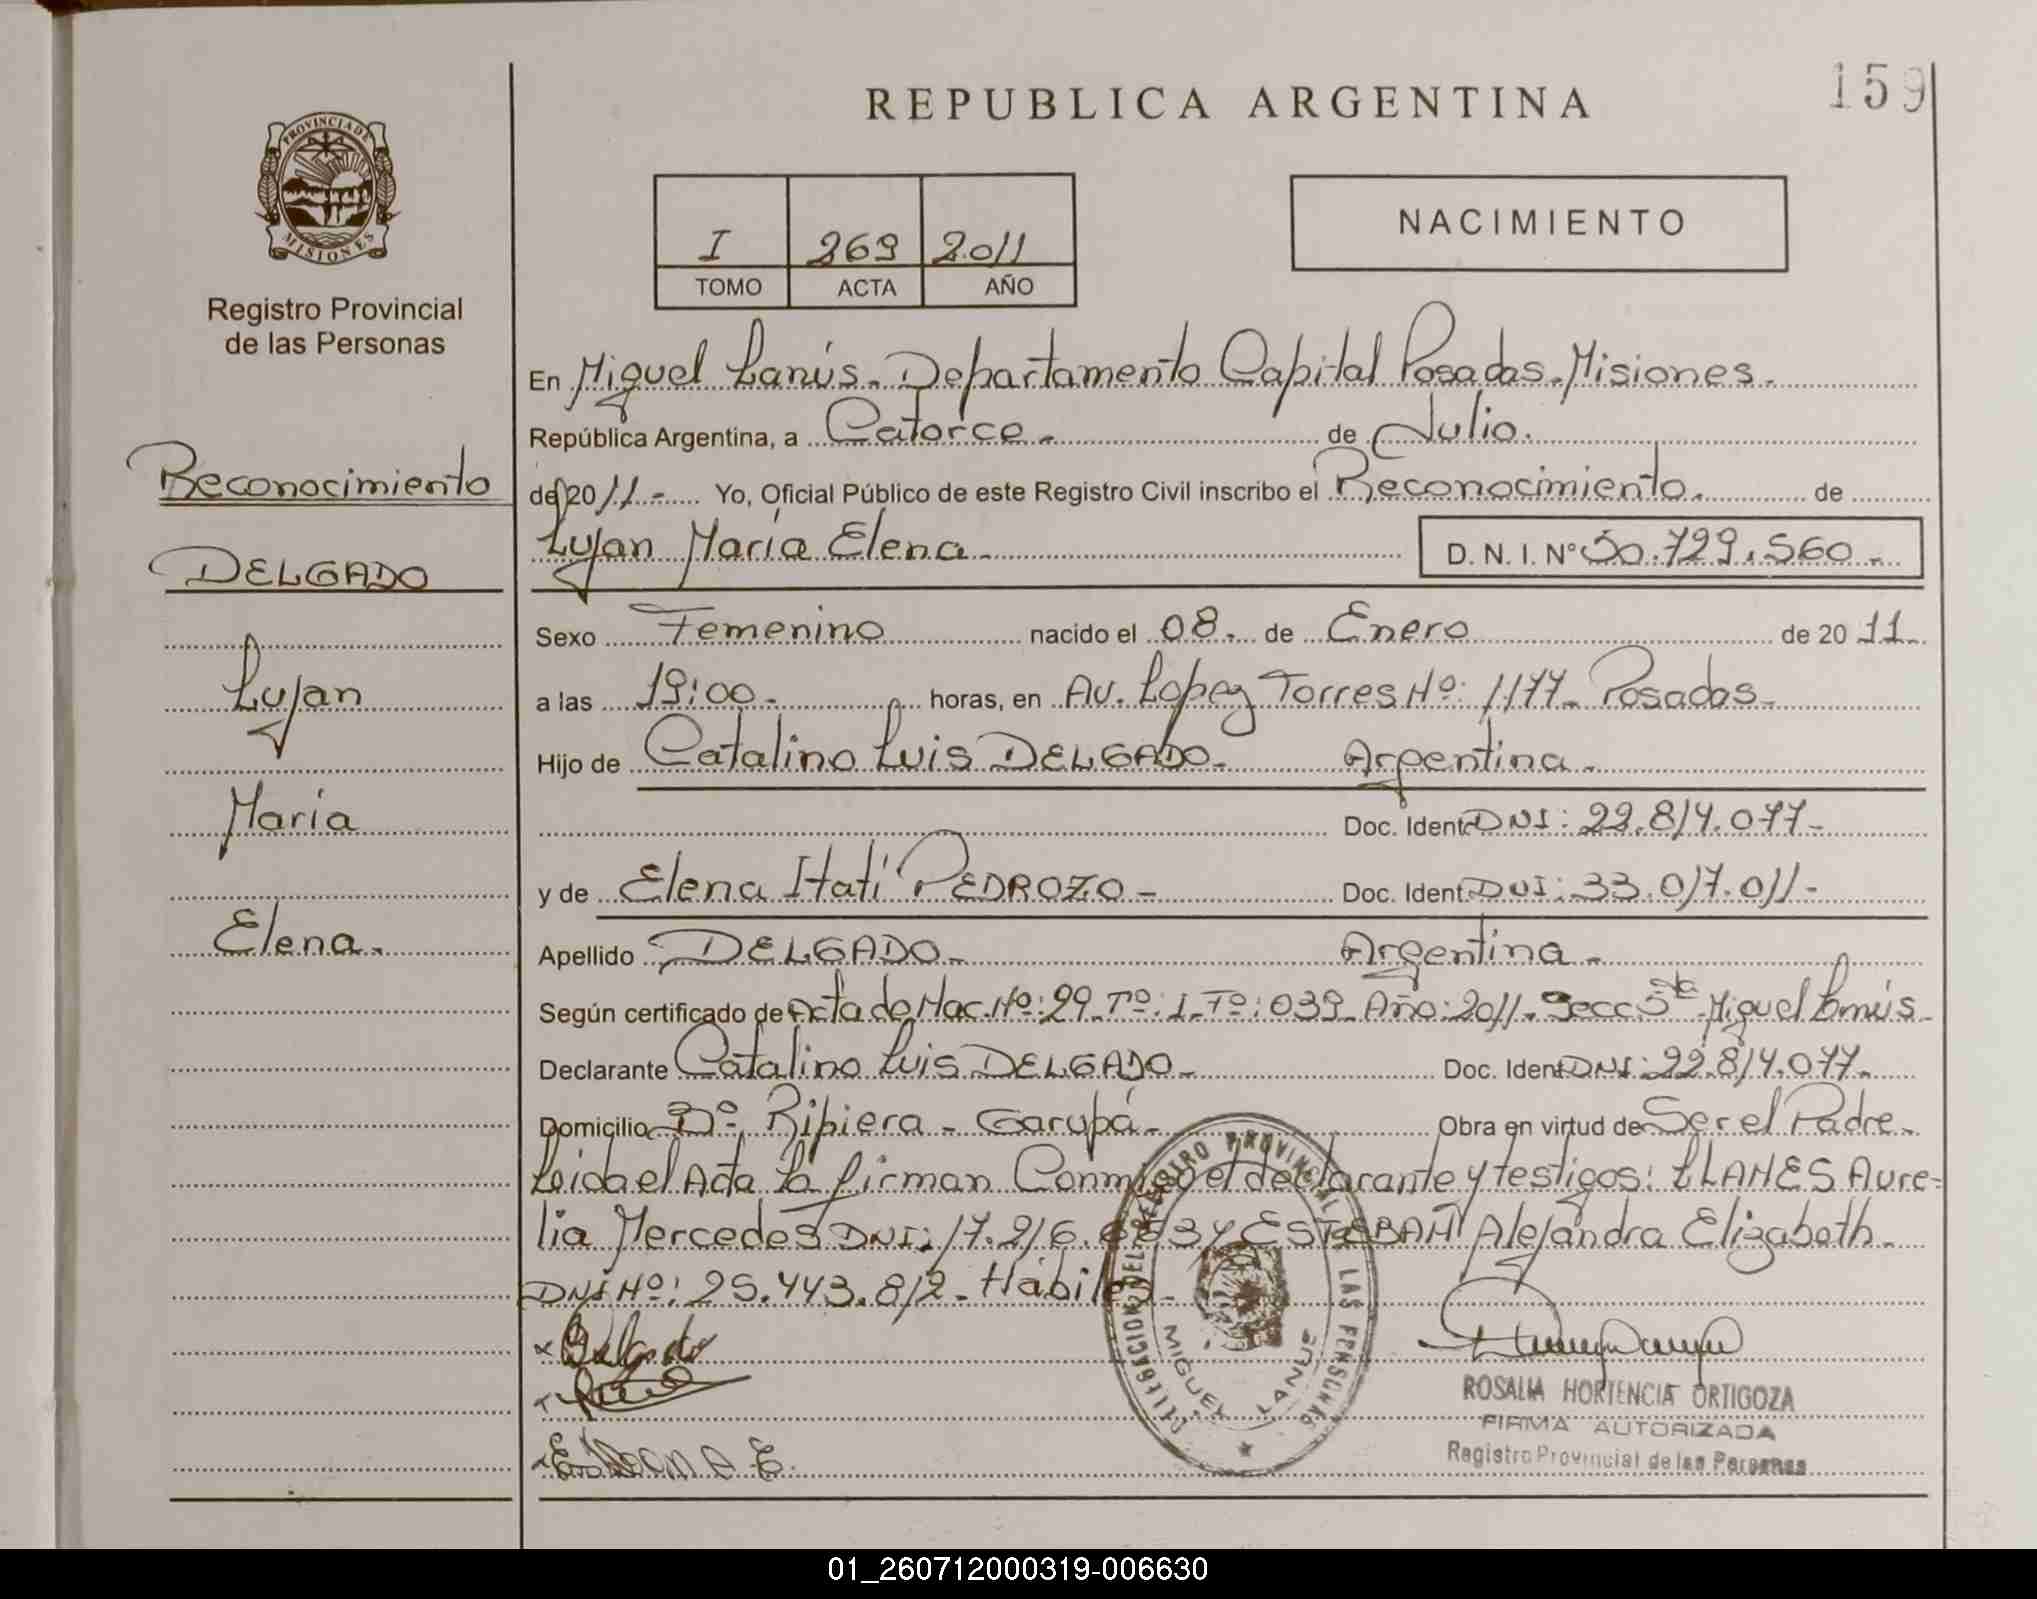 159
REPUBLICA ARGENTINA
PROVINCIA DE
MISIONES
Registro Provincial
de las Personas
I 269 2.011
TOMO ACTA AÑO
NACIMIENTO
En Miguel Lanús. Departamento Capital Posadas. Misiones.
República Argentina, a Catorce. de Julio.
de 2011.- Yo, Oficial Público de este Registro Civil inscribo el Reconocimiento. de
Lujan María Elena. D. N. I. Nº 50.729.560.-
Sexo Femenino nacido el 08. de Enero de 2011.
a las 19:00. horas, en Av. Lopez Torres Nº: 1177. Posadas.
Hijo de Catalino Luis DELGADO. Argentina.
Doc. Ident. DNI: 22.814.077.
y de Elena Itatí PEDROZO.- Doc. Ident. DNI: 33.017.011.-
Apellido DELGADO. Argentina.
Según certificado de Acta de Nac. Nº: 29. Tº: I. Fº: 039. Año: 2011. Secc. 5ta Miguel Lanús.
Declarante Catalino Luis DELGADO. Doc. Ident. DNI: 22.814.077.
Domicilio Bº. Ripiera - Garupá. Obra en virtud de Ser el Padre.
Leida el Acta, la firman Conmigo el declarante y testigos: LLANES Aure=
lia Mercedes DNI: 17.216. y ESTEBAN Alejandra Elizabeth.
DNI Nº: 25.443.812. Hábiles.
Reconocimiento
DELGADO
Lujan
María
Elena.
Delgado
DELEGACION DEL REGISTRO PROVINCIAL DE LAS PERSONAS
MIGUEL LANUS
ROSALIA HORTENCIA ORTIGOZA
FIRMA AUTORIZADA
Registro Provincial de las Personas
01_260712000319-006630